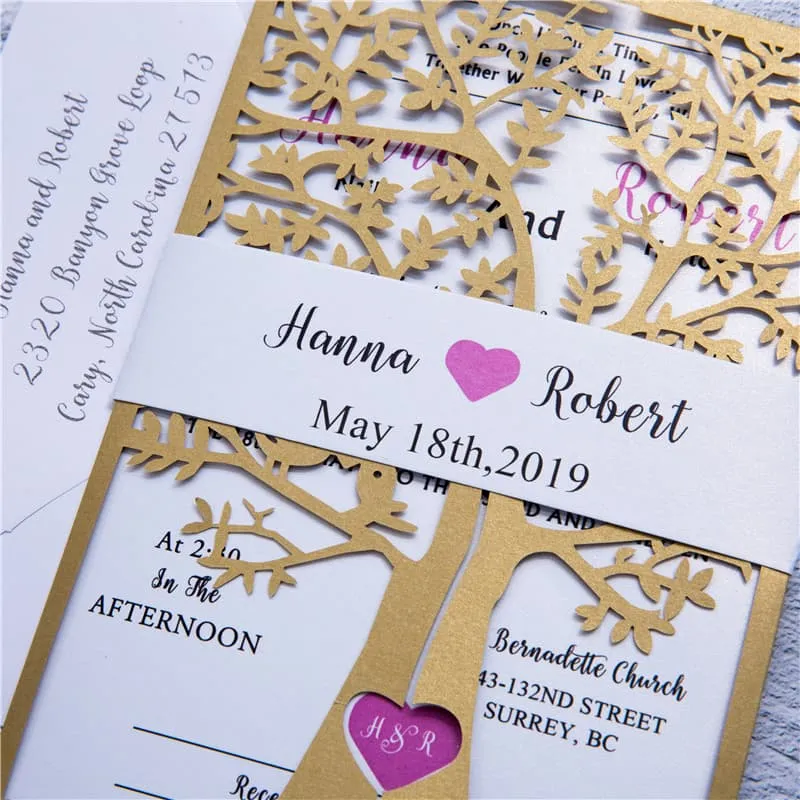 Hanna and Robert
2320 Banyon Grove Loop
Cary, North Carolina 27513
Once
Time
People
In Love
Together With Our
Hanna
Robert
And
Hanna Robert
May 18th,2019
THE 18
O TH
AND
At 2:30
In The
AFTERNOON
Bernadette Church
43-132ND STREET
SURREY, BC
H & R